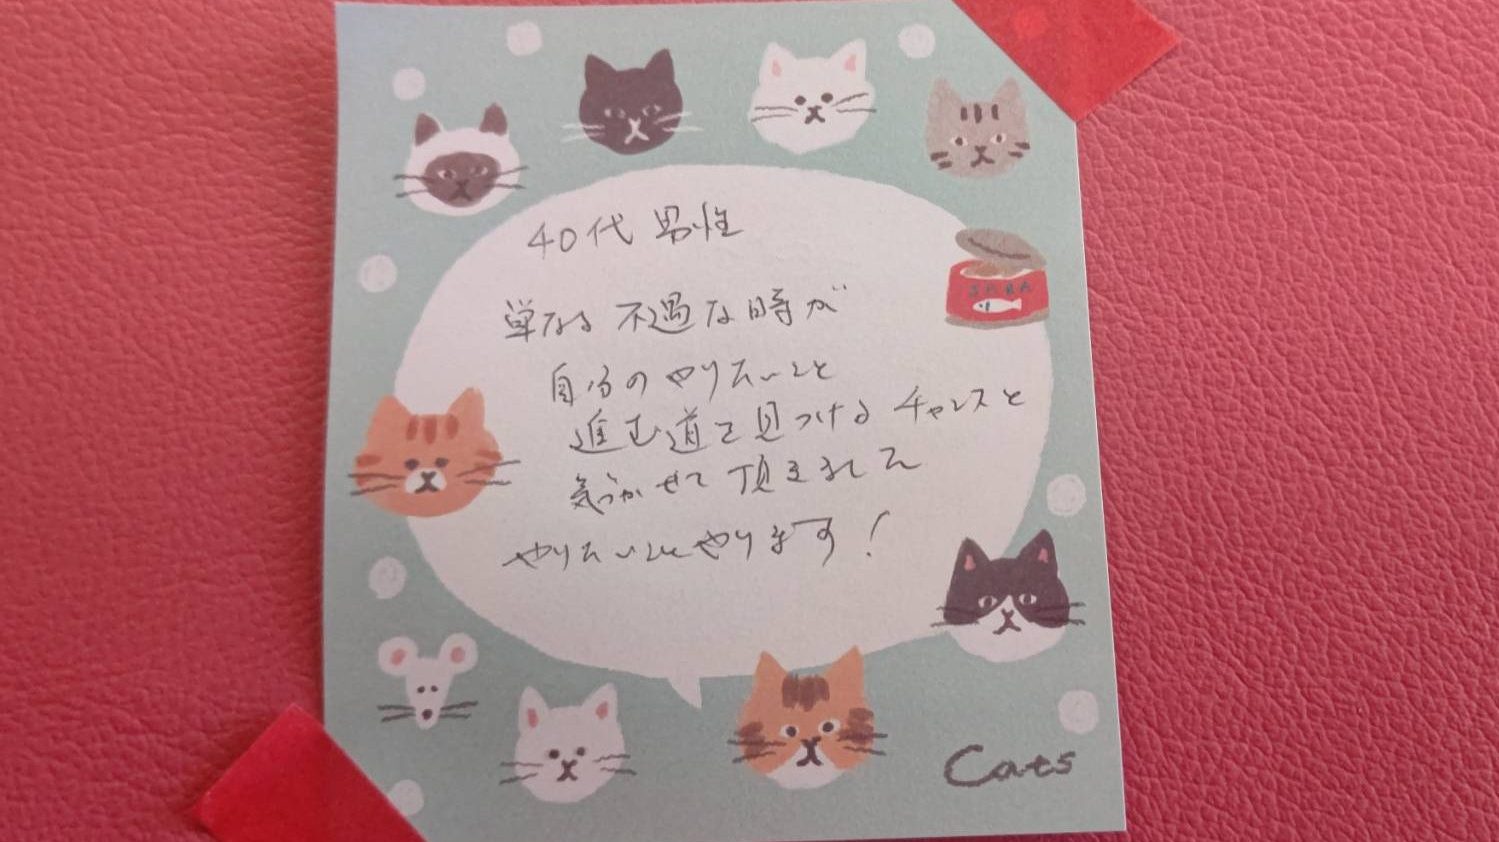 40代 男性
単なる不遇な時が
自分のやりたいこと
進む道を見つけるチャンスと
気づかせて頂きました
やりたいことやります!
Cats